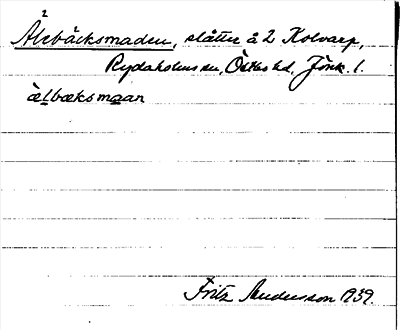 Älebäcksmaden, slåtter å 2 Kolvarp,
Rydaholms sn, Östbo hd, Jönk. l.
älbæksmaan
Fritz Andersson 1939.